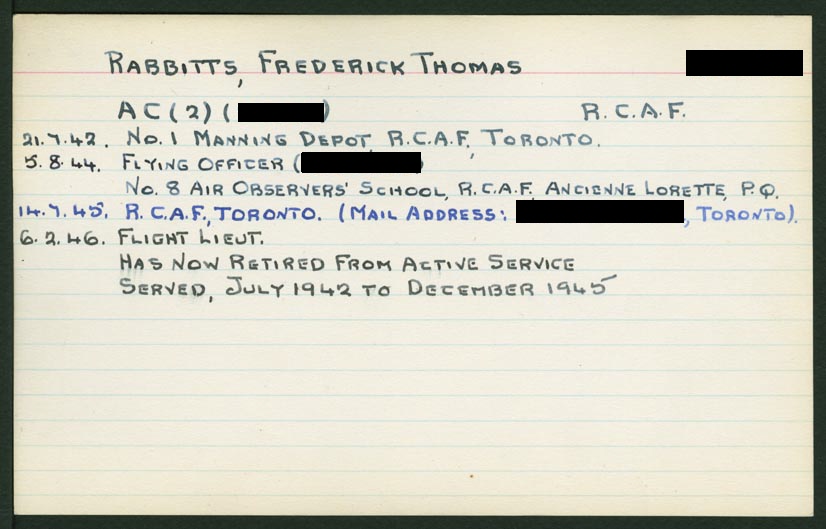 RABBITTS, FREDERICK THOMAS
AC (2) ( ) R.C.A.F.
21.7.42. No. 1 MANNING DEPOT, R.C.A.F., TORONTO.
5.8.44. FLYING OFFICER ( )
No. 8 AIR OBSERVERS' SCHOOL, R.C.A.F., ANCIENNE LORETTE, P.Q.
14.7.45. R.C.A.F., TORONTO. (MAIL ADDRESS: , TORONTO).
6.2.46. FLIGHT LIEUT.
HAS NOW RETIRED FROM ACTIVE SERVICE
SERVED, JULY 1942 TO DECEMBER 1945